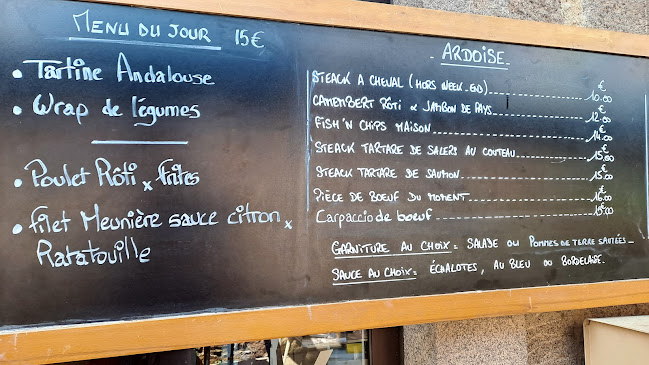 MENU DU JOUR 15€
• Tartine Andalouse
• Wrap de légumes
• Poulet Rôti x frites
• filet Meunière sauce citron x
Ratatouille
ARDOISE
STEACK A CHEVAL (HORS WEEK-END) 10.00€
CAMEMBERT RÔTI x JAMBON DE PAYS 12.00€
FISH'N CHIPS MAISON 14.00€
STEACK TARTARE DE SALERS AU COUTEAU 15.00€
STEACK TARTARE DE SAUMON 15.00€
PIÈCE DE BOEUF DU MOMENT 16.00€
Carpaccio de boeuf 15.00€
GARNITURE AU CHOIX = SALADE OU POMMES DE TERRE SAUTÉES
SAUCE AU CHOIX = ÉCHALOTES, AU BLEU OU BORDELAISE.